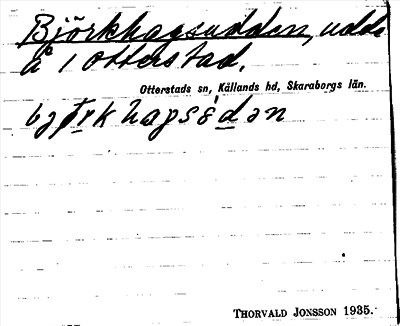 Björkhagsudden, udde
å 1 Otterstad.
Otterstads sn, Kållands hd, Skaraborgs län.
THORVALD JONSSON 1935.